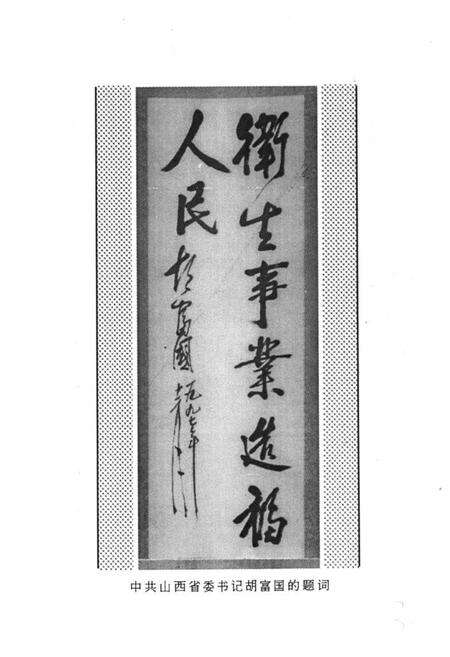 衛生事業造福
人民
胡富國
一九九七年
中共山西省委书记胡富国的题词